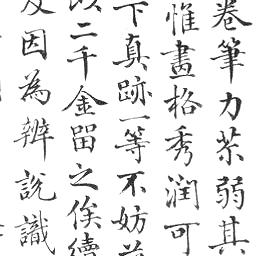 卷筆力茶弱其
惟畫格秀潤可
下真跡一等不妨
二千金留之俟續
因為辨說識